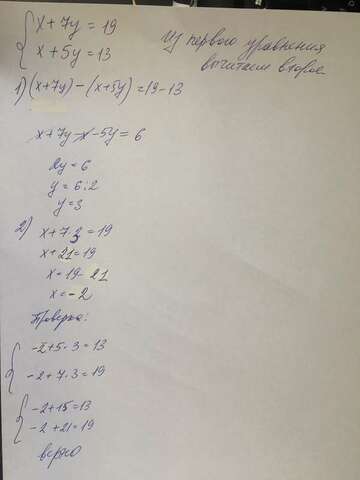 x + 7y = 19
x + 5y = 13
Из первого уравнения
вычитаем второе
1) (x+7y) - (x+5y) = 19 - 13
x + 7y - x - 5y = 6
2y = 6
y = 6 : 2
y = 3
2) x + 7·3 = 19
x + 21 = 19
x = 19 - 21
x = -2
Проверка:
-2 + 5 · 3 = 13
-2 + 7 · 3 = 19
-2 + 15 = 13
-2 + 21 = 19
верно